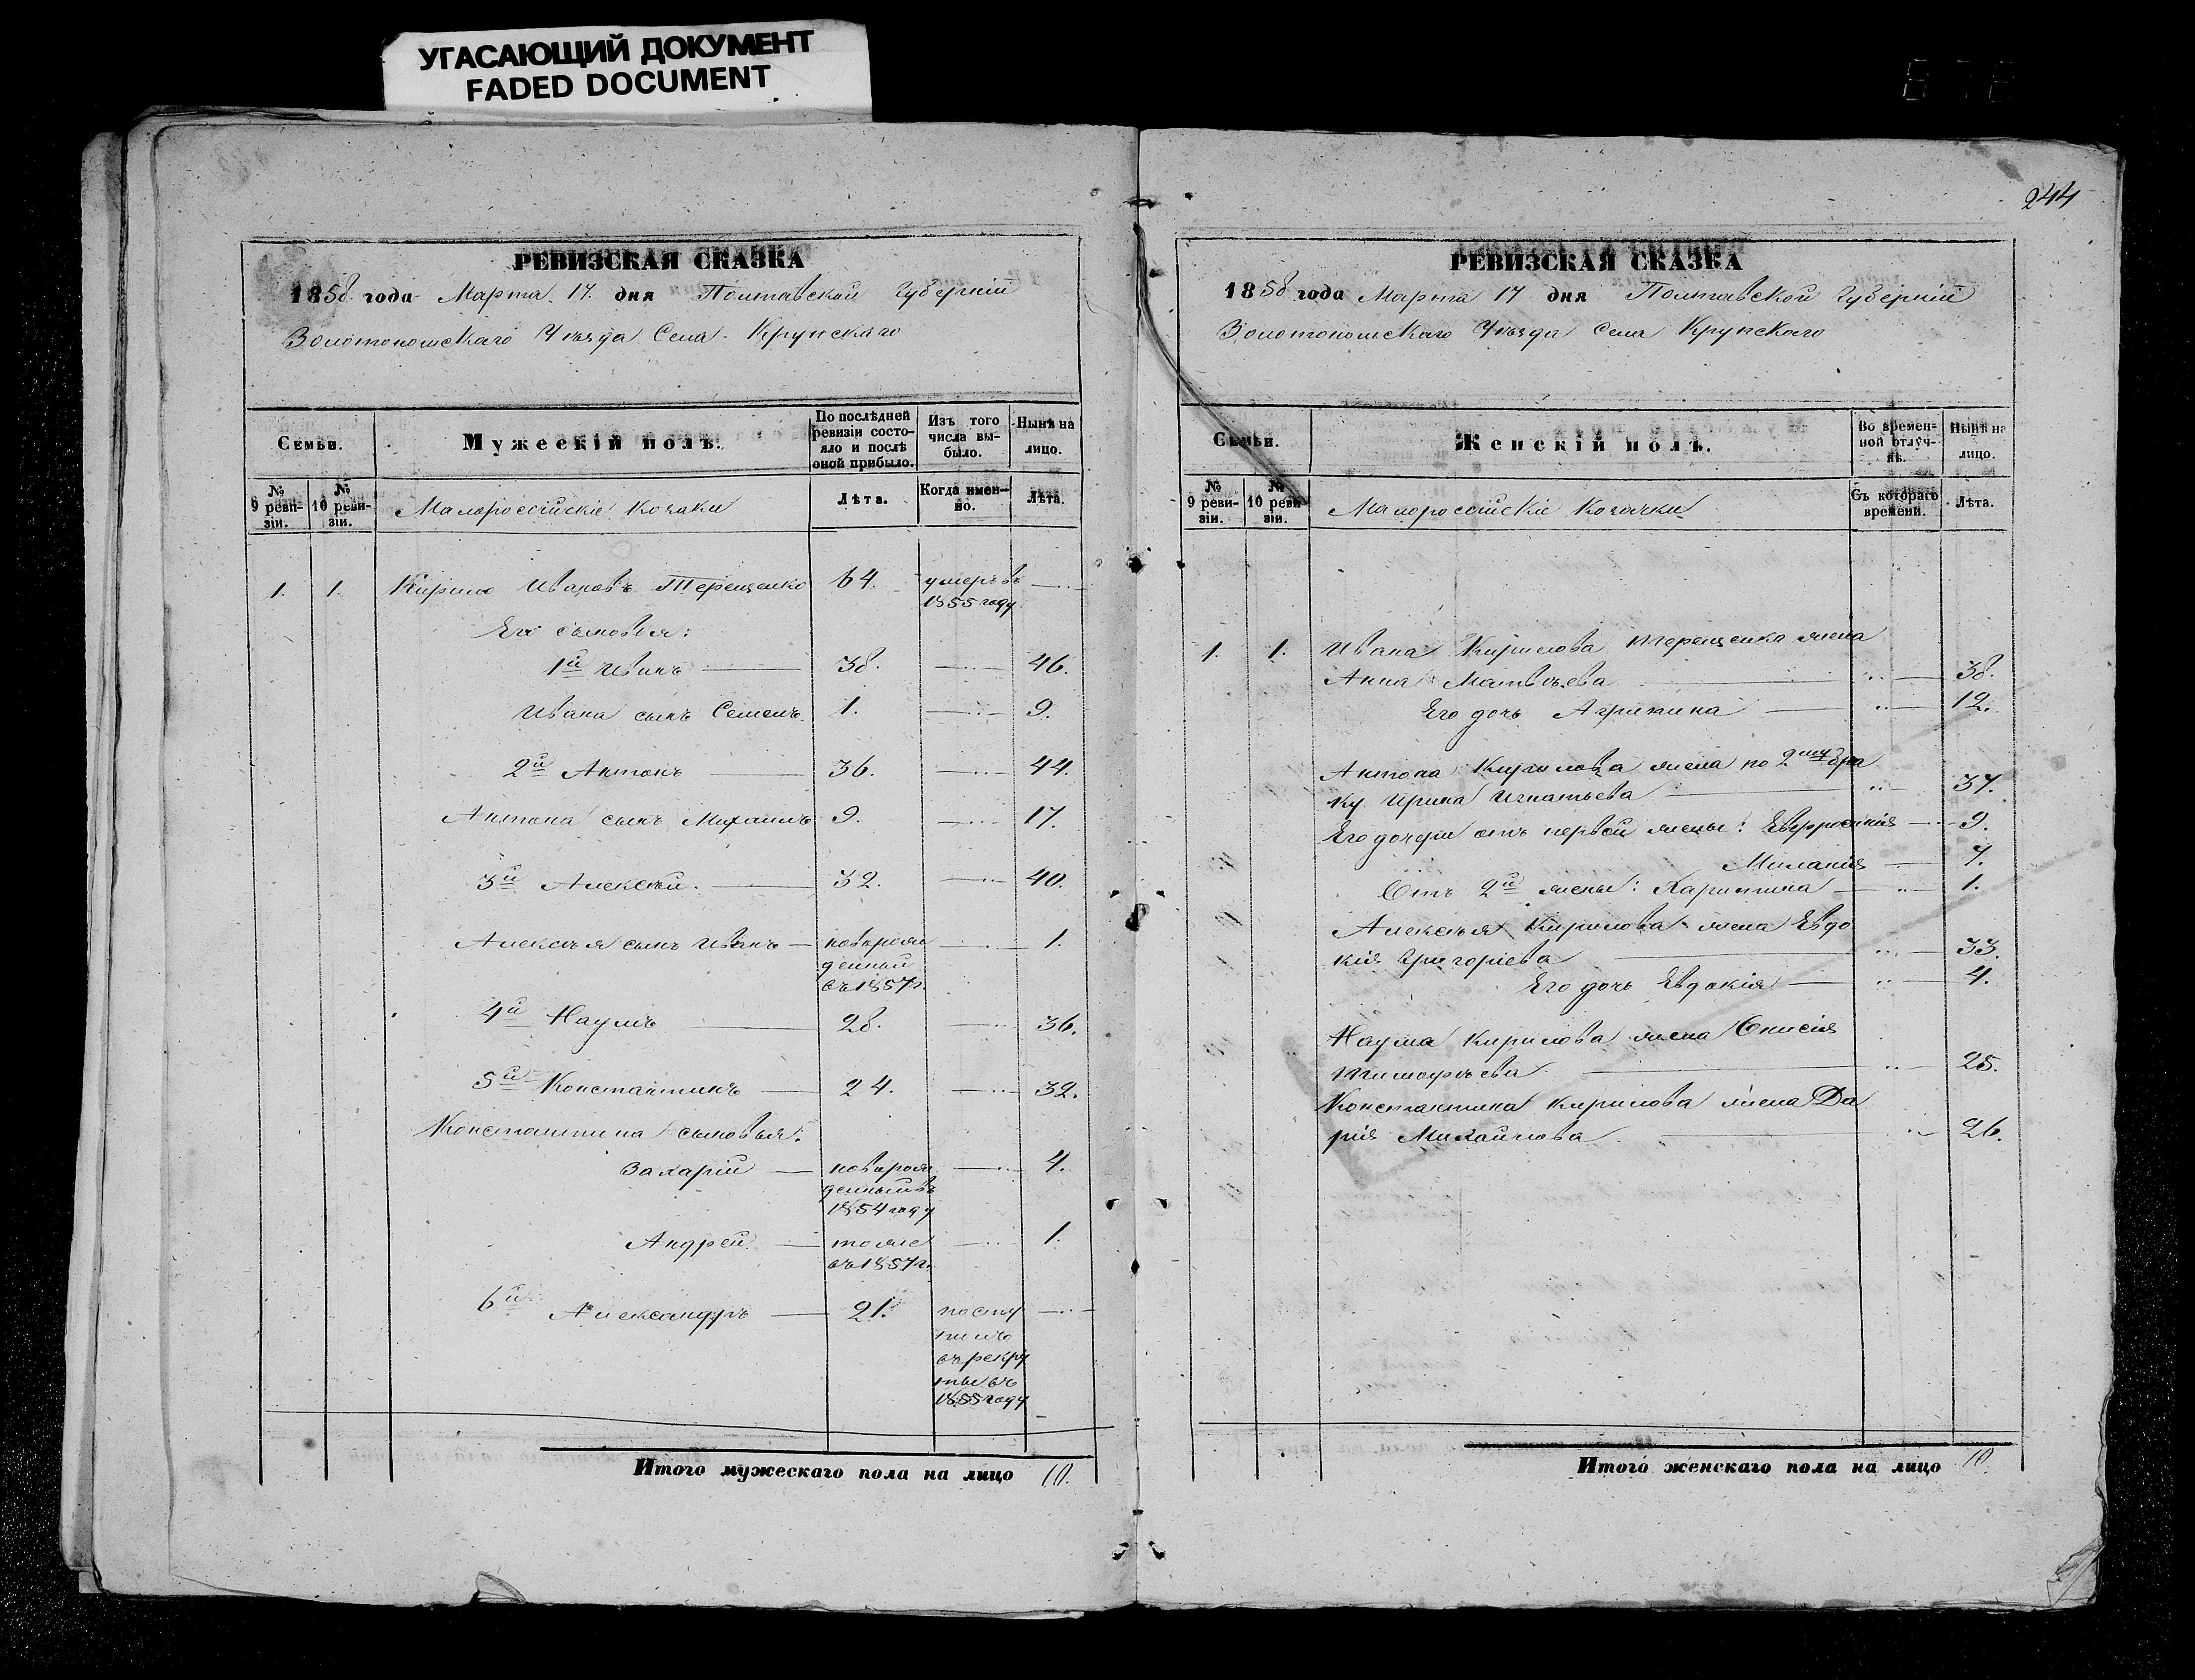 УГАСАЮЩИЙ ДОКУМЕНТ
FADED DOCUMENT
РЕВИЗСКАЯ СКАЗКА
1858 года Марта 17. дня Полтавской Губерніи
Золотоношскаго Уѣзда Села Крупскаго
Семьи.
Мужескій полъ.
По послѣдней ревизіи состояло и послѣ оной прибыло.
Изъ того числа выбыло.
Нынѣ на лицо.
№ 9 ревизіи.
№ 10 ревизіи.
Малороссійскіе Козаки
Лѣта.
Когда именно.
Лѣта.
1. 1. Кирило Ивановъ Терещенко 64. умеръ въ
1855 году
Его сыновья:
1й Иванъ 38. 46.
Ивана сынъ Семенъ 1. 9.
2й Антонъ 36. 44.
Антона сынъ Михаилъ 9. 17.
3й Алексѣй. 32. 40.
Алексѣя сынъ Иванъ новорож 1.
денный
въ 1857 г.
4й Наумъ 28. 36.
5й Константинъ 24. 32.
Константина сыновья:
Захарій новорож 4.
денный въ
1854 году
Андрей тоже 1.
въ 1857 г.
6й Александръ 21. посту
пилъ
въ рекру
ты въ
1855 году
Итого мужескаго пола на лицо 10.
244
РЕВИЗСКАЯ СКАЗКА
1858 года Марта 17 дня Полтавской Губерніи
Золотоношскаго Уѣзда Села Крупскаго
Семьи.
Женскій полъ.
Во временной отлучкѣ.
Нынѣ на лицо.
№ 9 ревизіи.
№ 10 ревизіи.
Малороссійскіе Козачки
Съ котораго времени.
Лѣта.
1. 1. Ивана Кирилова Терещенка жена
Анна Матвѣева 38.
Его дочь Агрипина 12.
Антона Кирилова жена по 2му бра
ку Ирина Игнатьева 37.
Его дочери отъ первой жены: Евфросинія 9.
Миланія 7.
Отъ 2й жены: Харитина 1.
Алексѣя Кирилова жена Евдо
кія Григоріева 33.
Его дочь Евдокія 4.
Наума Кирилова жена Онисія
Тимофѣева 25.
Константина Кирилова жена Да
рія Михайлова 26.
Итого женскаго пола на лицо 10.